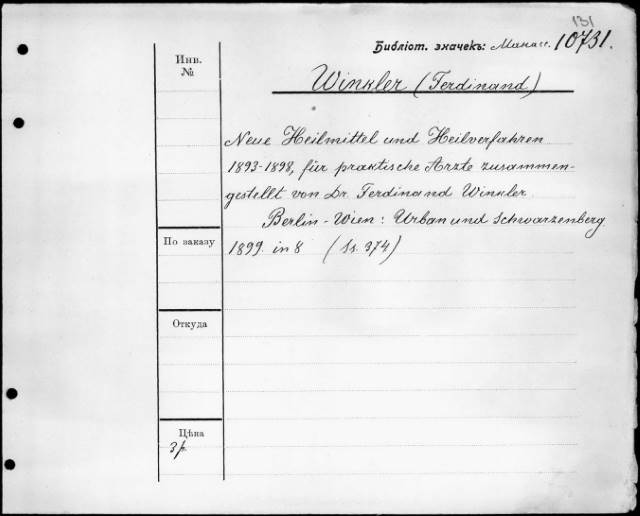 131
Библіот. значекъ: Манасс. 10731.
Инв.
№
Winkler (Ferdinand)
Neue Heilmittel und Heilverfahren
1893-1898, für praktische Arzte zusammen-
gestellt von Dr. Ferdinand Winkler
Berlin - Wien: Urban und Schwarzenberg
1899. in 8 (Ss. 374)
По заказу
Откуда
Цѣна
3р